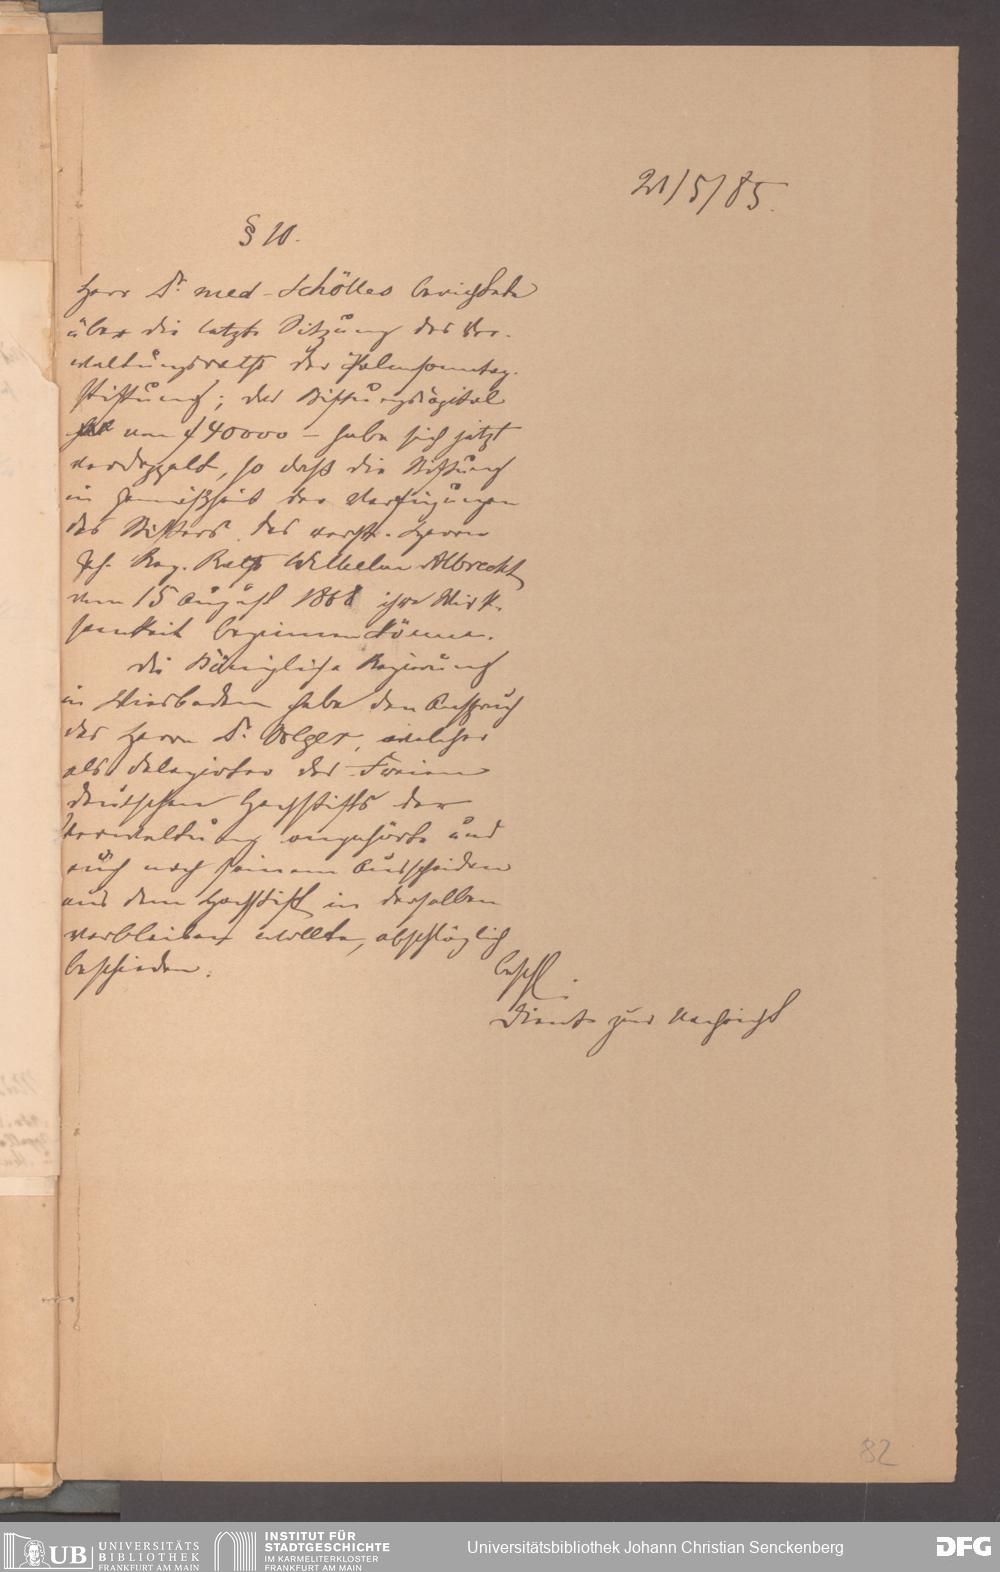 21/5/85.
§ 10.
Herr Dr. med. Schölles berichtete
über die letzte Sitzung des Ver-
waltungsraths der Palmsonntag-
stiftung; das Stiftungskapital
von 40000 – habe sich jetzt
verdoppelt, so daß die Stiftung
in Gemäßheit der Verfügungen
des Stifters des verst. Herrn
Geh. Reg. Raths Wilhelm Albrecht
vom 15 August 1868 ihre Wirk-
samkeit beginnen könne.
Die Königliche Regierung
in Wiesbaden habe den Anspruch
des Herrn Dr. Volger, welcher
als Delegirter des Freien
deutschen Hochstifts der
Verwaltung angehörte und
auch nach seinem Ausscheiden
aus dem Hochstift in derselben
verbleiben wollte, abschläglich
beschieden.
Beschl.:
Diente zur Nachricht
82
UB UNIVERSITÄTS
BIBLIOTHEK
FRANKFURT AM MAIN
INSTITUT FÜR
STADTGESCHICHTE
IM KARMELITERKLOSTER
FRANKFURT AM MAIN
Universitätsbibliothek Johann Christian Senckenberg
DFG